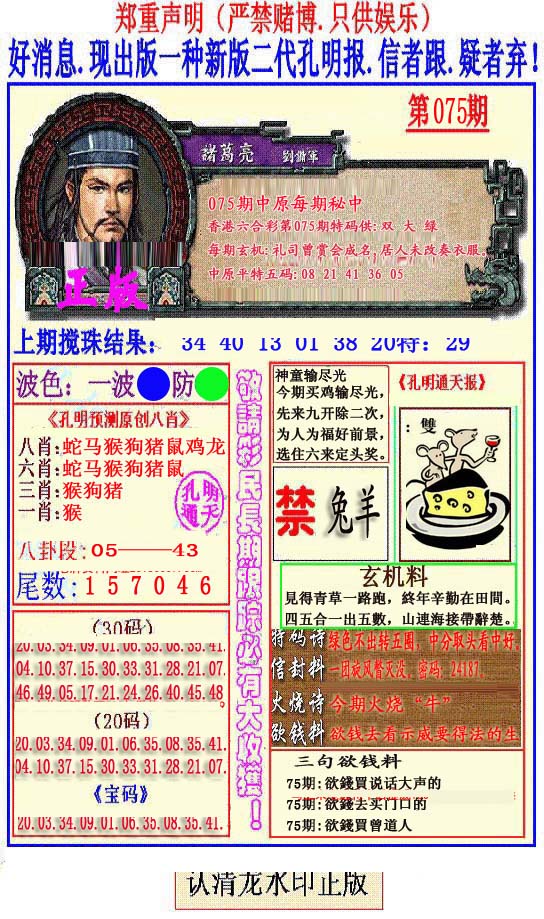 郑重声明（严禁赌博.只供娱乐）
好消息.现出版一种新版二代孔明报.信者跟.疑者弃!
第075期
諸葛亮 劉備軍
075期中原每期秘中
香港六合彩第075期特码供: 双 大 绿
每期玄机: 礼司曾赏会成名, 居人未改奏衣服.
中原平特五码: 08 21 41 36 05
正版
上期搅珠结果： 34 40 13 01 38 20特: 29
波色：一波 防
《孔明预测原创八肖》
八肖:蛇马猴狗猪鼠鸡龙
六肖:蛇马猴狗猪鼠
三肖:猴狗猪
一肖:猴
孔明
通天
八卦段:05——43
尾数:157046
(30码)
20.03.34.09.01.06.35.08.35.41.
04.10.37.15.30.33.31.28.21.07.
46.49.05.17.21.24.26.40.45.48.
(20码)
20.03.34.09.01.06.35.08.35.41.
04.10.37.15.30.33.31.28.21.07.
《宝码》
20.03.34.09.01.06.35.08.35.41.
敬請彩民長期跟踪必有大收獲！
神童输尽光
今期买鸡输尽光,
先来九开除二次,
为人为福好前景,
选住六来定头奖。
《孔明通天报》
：雙
禁 兔羊
玄机料
見得青草一路跑，終年辛勤在田間。
四五合一出五數，山連海接帶辭楚。
特码诗 绿色不出转五圈，中分取头看中好,
信封料 一团旋风督灭没。密码: 24187.
火烧诗 今期火烧“牛”
欲钱料 欲钱去看示威要得法的生
三句欲钱料
75期:欲錢買说话大声的
75期:欲錢去买门口的
75期:欲錢買曾道人
认清龙水印正版